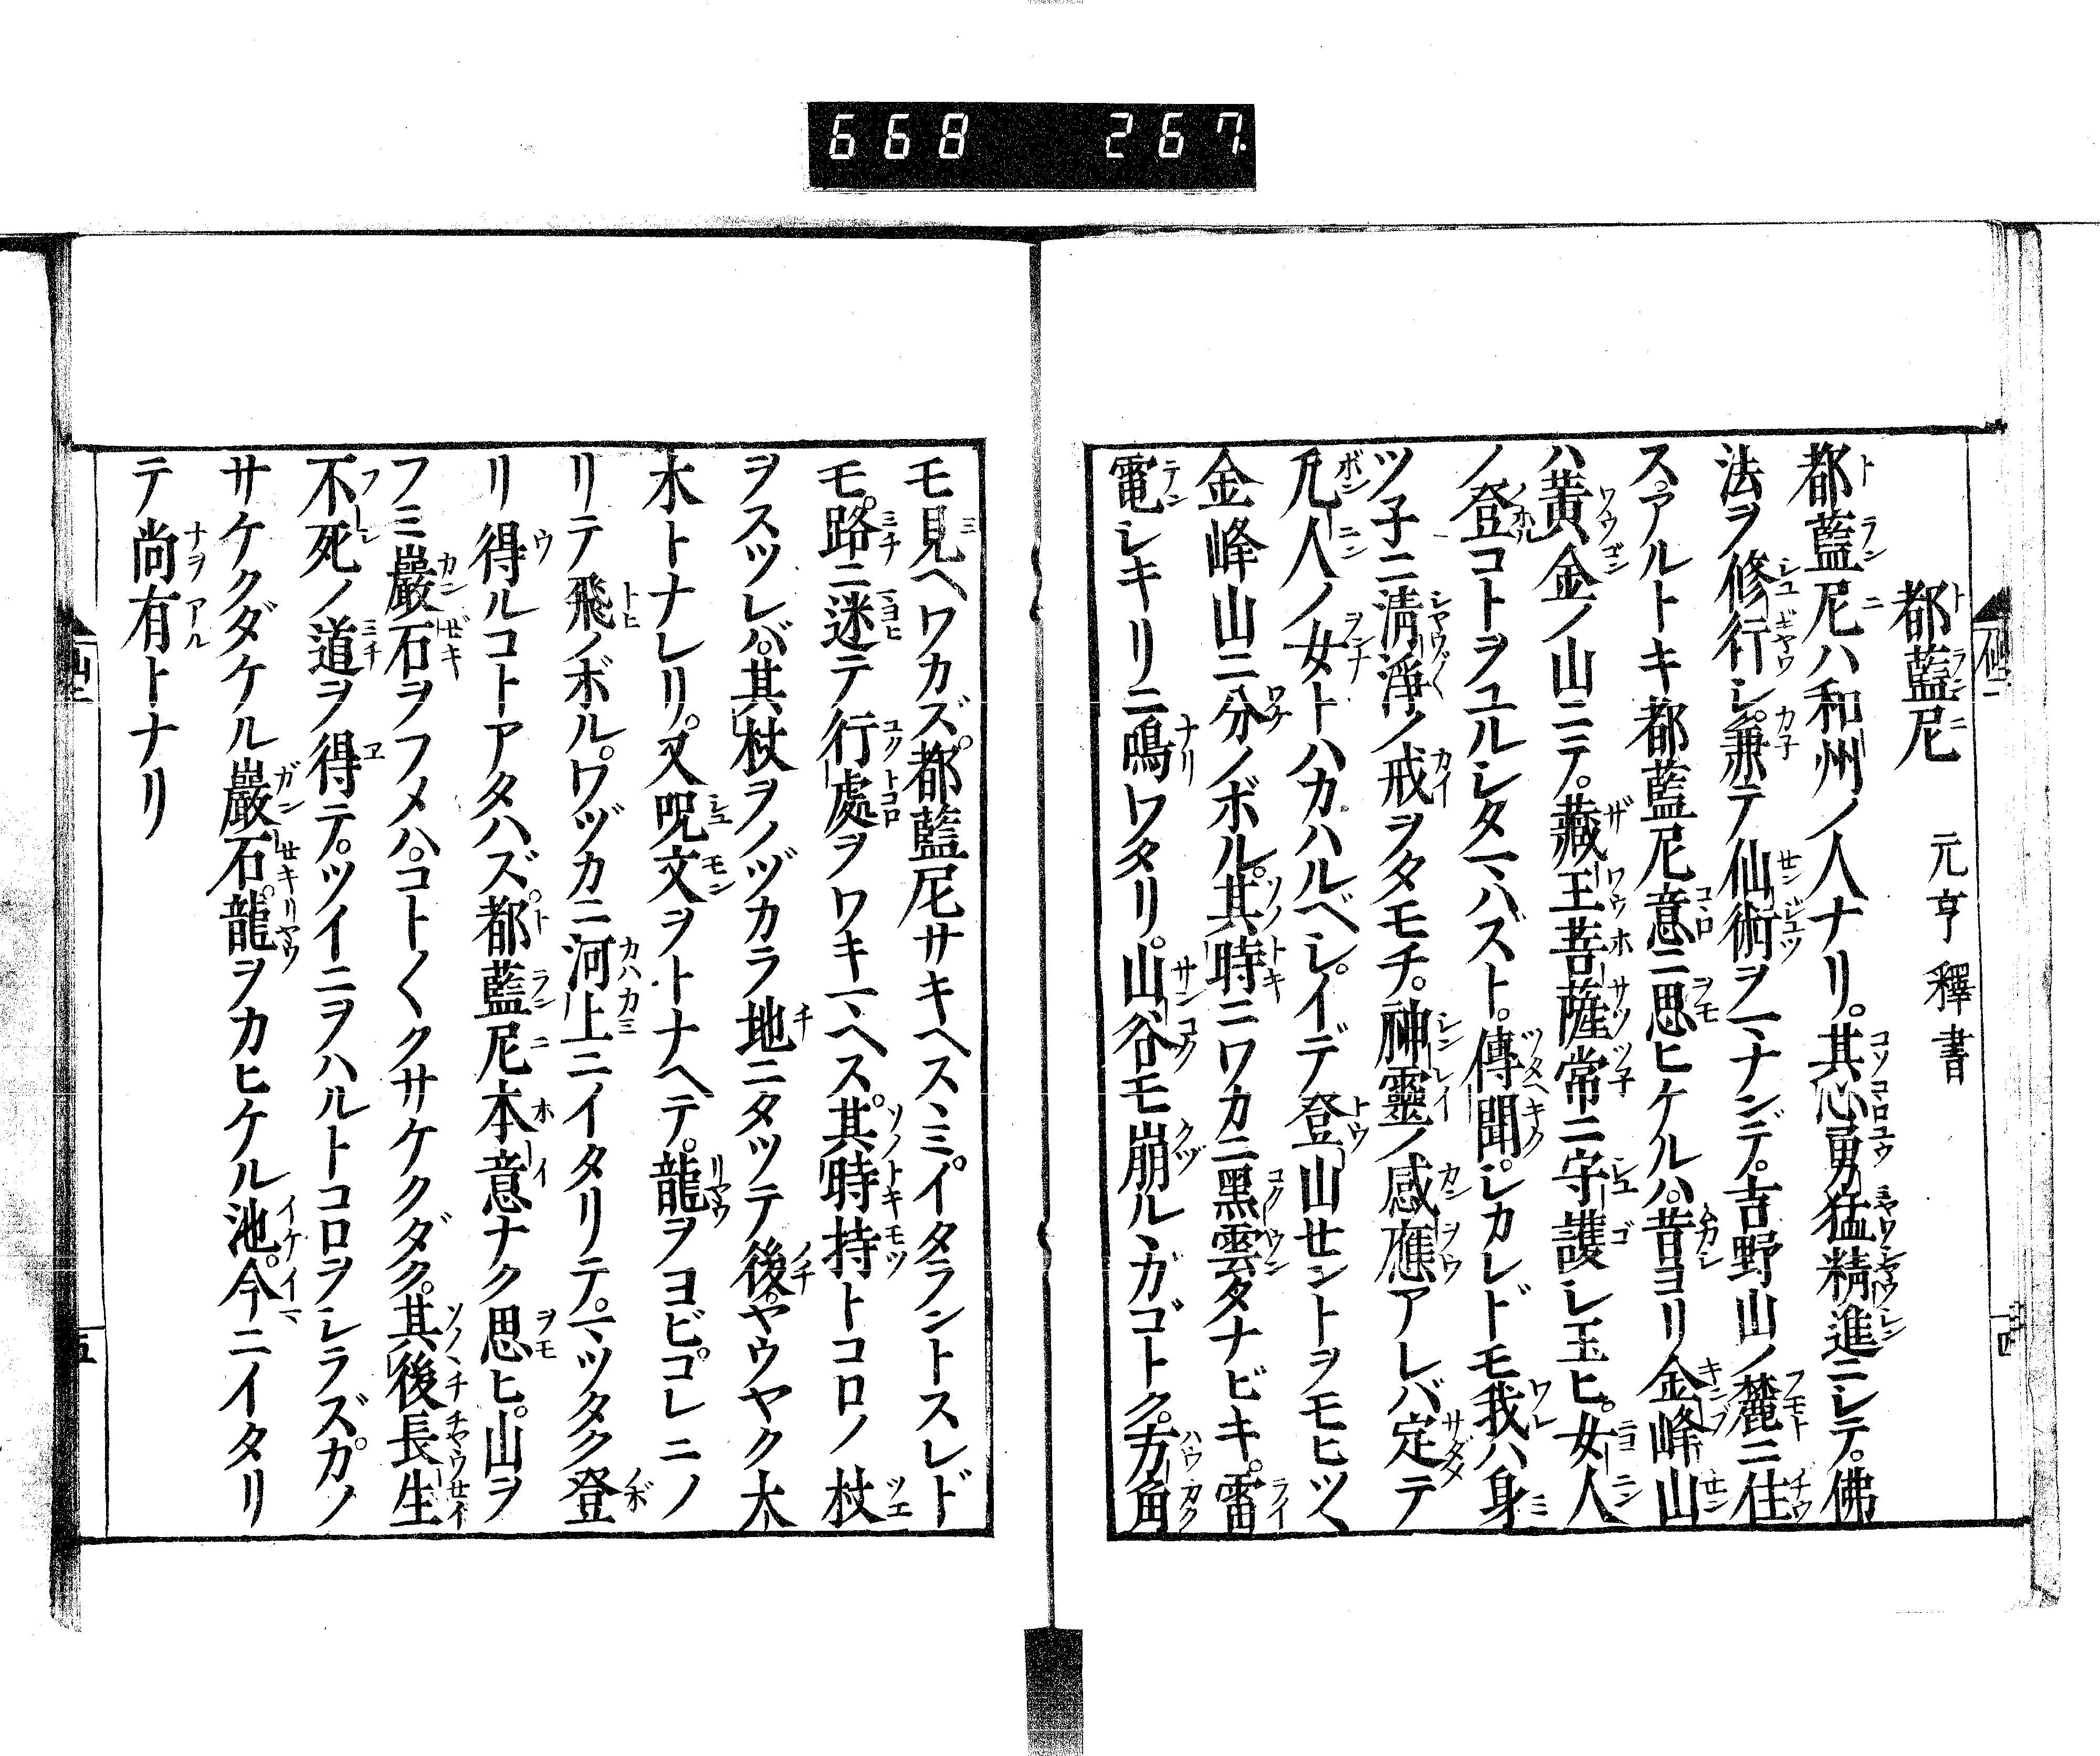 668 267
都藍尼 元亨釋書
都藍尼ハ和州ノ人ナリ。其心勇猛精進ニシテ。佛
法ヲ修行シ。兼テ仙術ヲマナンデ。吉野山ノ麓ニ住
ス。アルトキ都藍尼意ニ思ヒケルハ。昔ヨリ金峰山
ハ黄金ノ山ニテ。藏王菩薩常ニ守護シ玉ヒ。女人
ノ登コトヲユルシタマハズト。傳聞。シカレドモ我ハ身
ツ子ニ淸淨ノ戒ヲタモチ。神靈ノ感應アレバ定テ
凡人ノ女トハカハルベシ。イデ登山セントヲモヒツヽ
金峰山ニ分ノボル。其時ニワカニ黑雲タナビキ。雷
電シキリニ鳴ワタリ。山谷モ崩ルヽガゴトク。方角
モ見ヘワカズ。都藍尼サキヘスヽミ。イタラントスレド
モ。路ニ迷テ行處ヲワキマヘス。其時持トコロノ杖
ヲスツレバ。其杖ヲノヅカラ地ニタツテ後。ヤウヤク大
木トナレリ。又呪文ヲトナヘテ。龍ヲヨビ。コレニノ
リテ飛ノボル。ワヅカニ河上ニイタリテ。マツタク登
リ得ルコトアタハズ。都藍尼本意ナク思ヒ。山ヲ
フミ巖石ヲフメハ。コト〱クサケクダク。其後長生
不死ノ道ヲ得テ。ツイニヲハルトコロヲシラズ。カノ
サケクダケル巖石。龍ヲカヒケル池。今ニイタリ
テ尚有トナリ
五